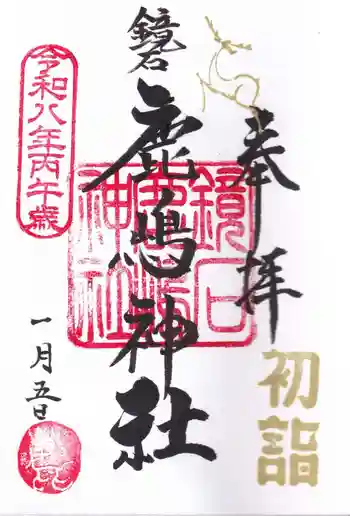 奉拝
初詣
鏡石
鹿嶋神社
鏡石
鹿嶋
神社
令和八年丙午歳
一月五日